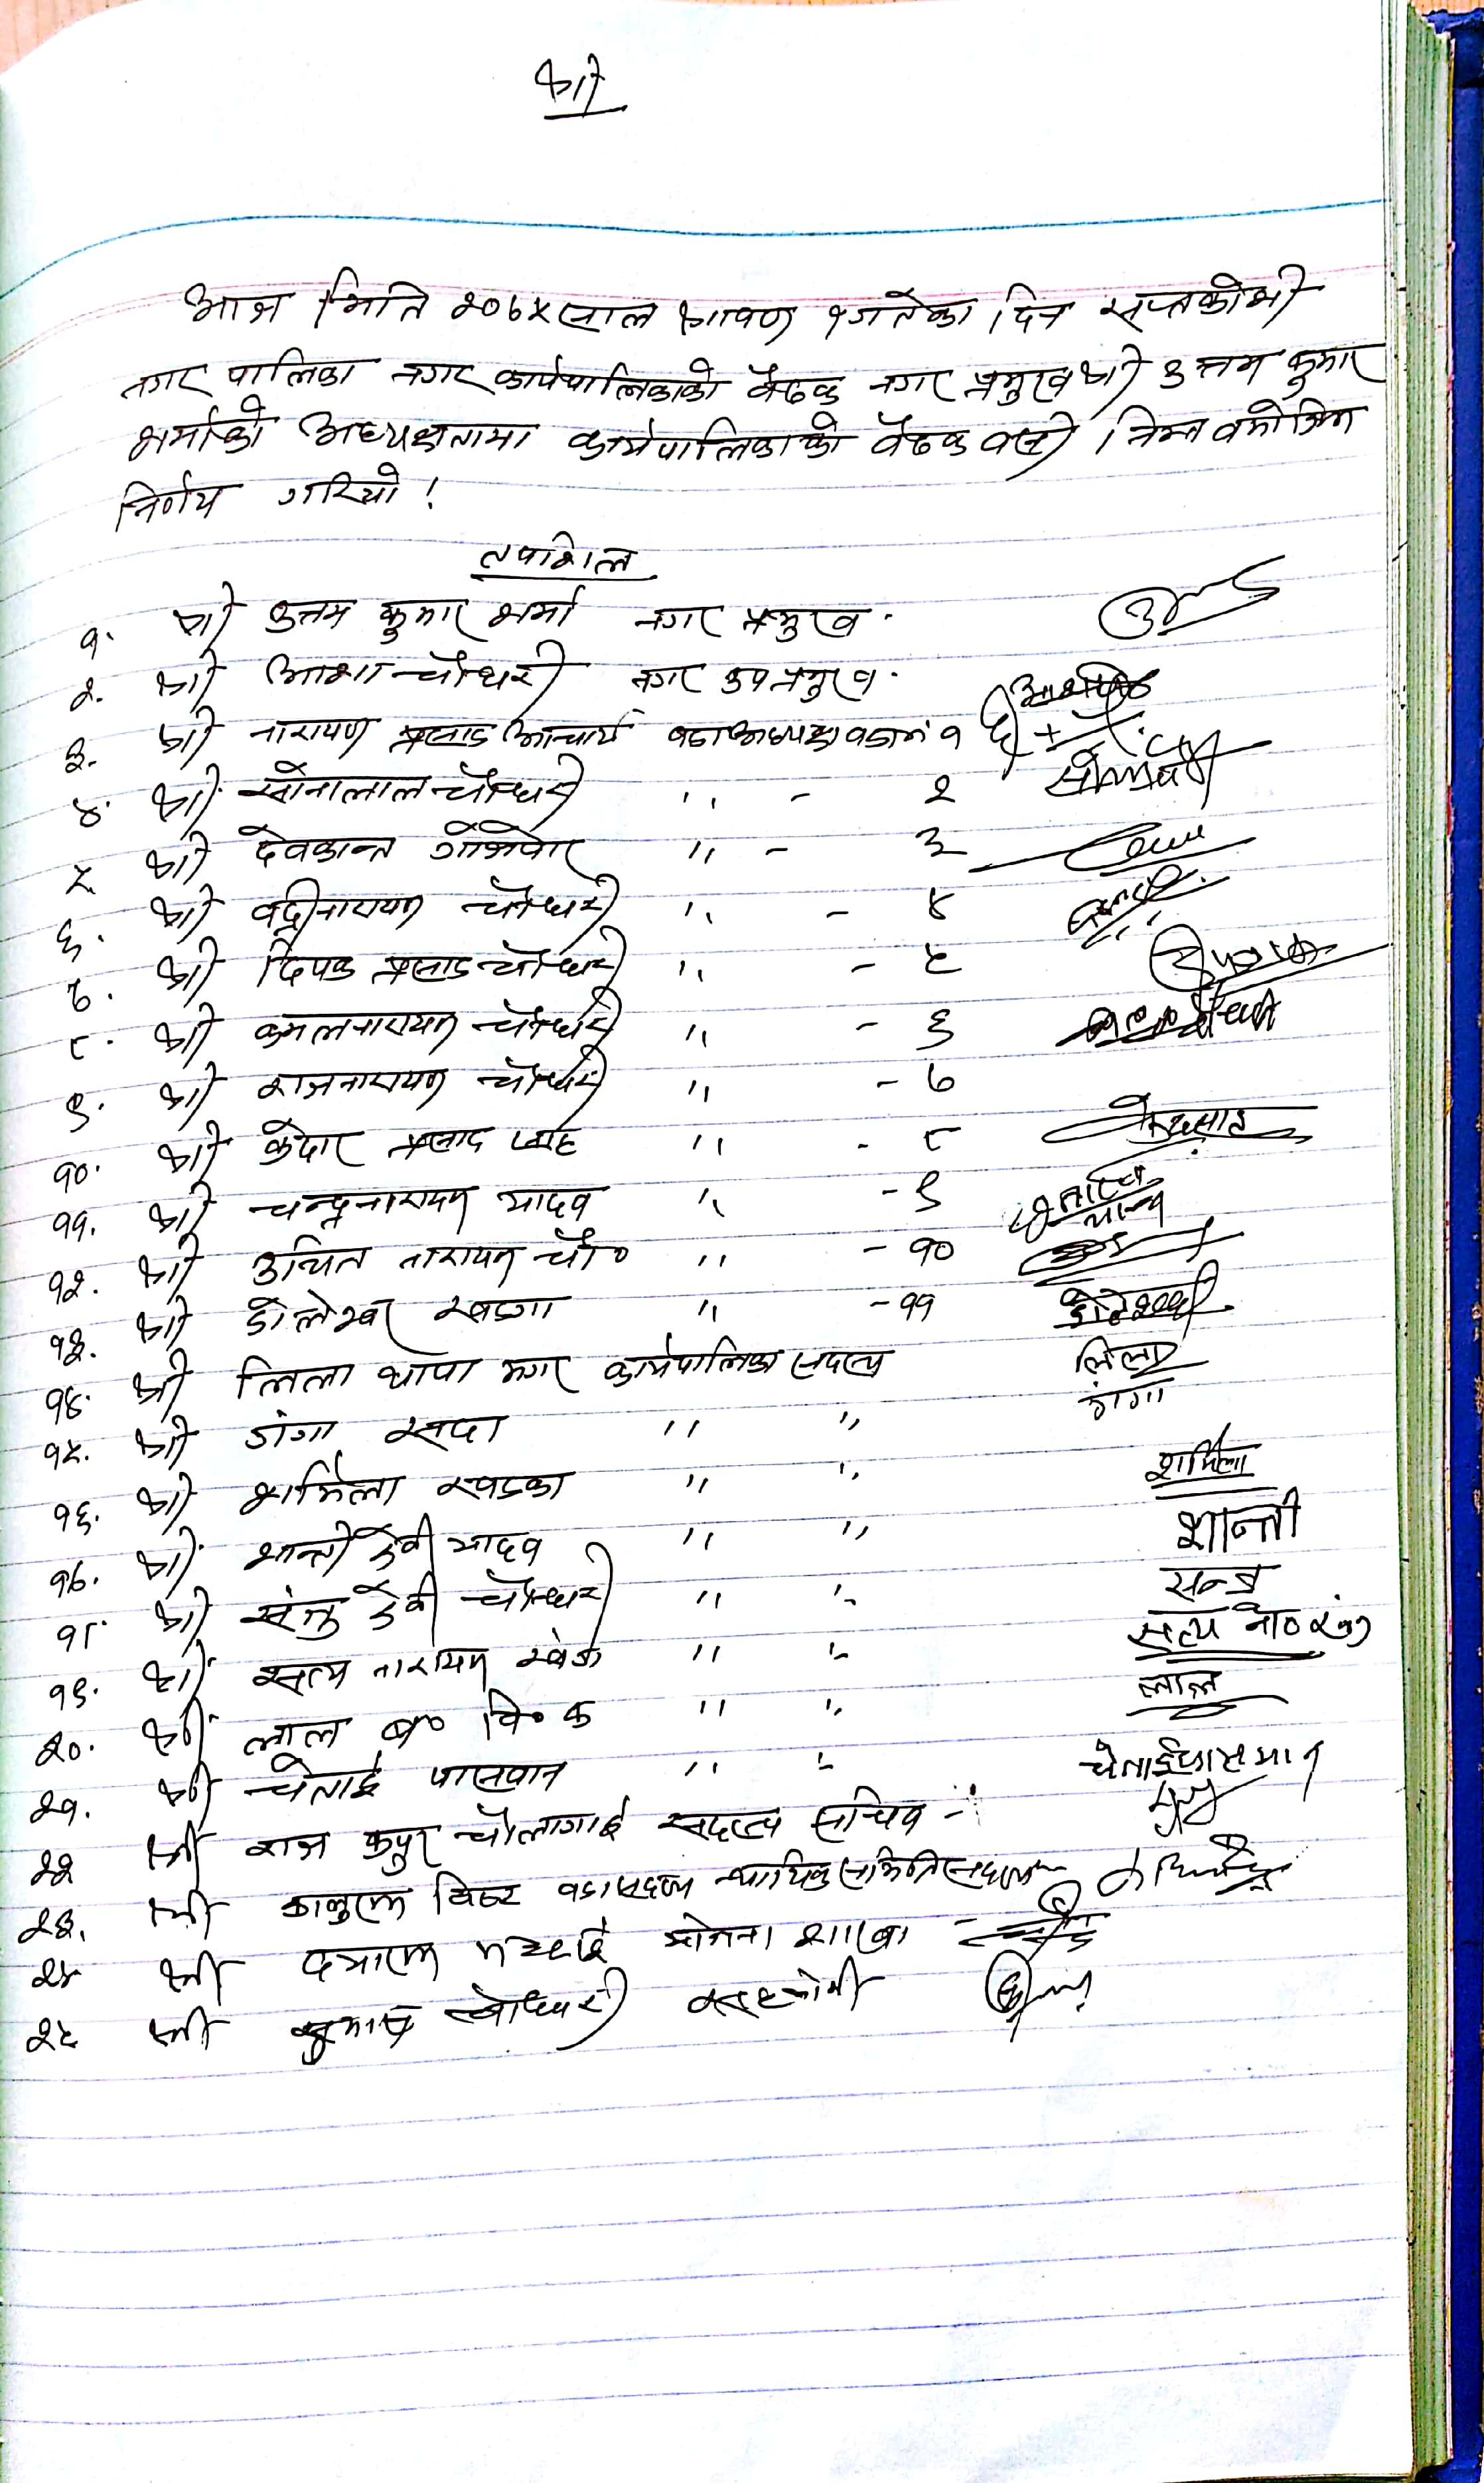 श्री
आज मिति २०७५ साल श्रावण १ गतेका दिन सप्तकोशी
नगर पालिका नगर कार्यपालिकाको बैठक नगर प्रमुख श्री उत्तम कुमार
शर्माको अध्यक्षतामा कार्यपालिकाको बैठक बसी निम्न बमोजिम
निर्णय गरियो !
तपशिल
१. श्री उत्तम कुमार शर्मा नगर प्रमुख.
२. श्री आशा चौधरी नगर उपप्रमुख.
३. श्री नारायण प्रसाद आचार्य वडा अध्यक्ष वडा नं १
४. श्री सोनालाल चौधरी ,, - २
५. श्री देवकान्त ,, - ३
६. श्री वद्रीनारायण चौधरी ,, - ४
७. श्री दिपक प्रसाद चौधरी ,, - ५
८. श्री कमलनारायण चौधरी ,, - ६
९. श्री राजनारायण चौधरी ,, - ७
१०. श्री केदार प्रसाद साह ,, - ८
११. श्री चन्द्रनारायण यादव ,, - ९
१२. श्री उचित नारायण चौ० ,, - १०
१३. श्री डोलेश्वर खड्गा ,, - ११
१४. श्री लिला थापा मगर कार्यपालिका सदस्य लिला
१५. श्री गंगा सदा ,, ,, गंगा
१६. श्री शर्मिला खडका ,, ,, शर्मिला
१७. श्री शान्ती देवी यादव ,, ,, शान्ती
१८. श्री संजु देवी चौधरी ,, ,, सन्जु
१९. श्री सत्य नारायण ,, ,, सत्य ना०
२०. श्री लाल ब० वि० क ,, ,, लाल
२१. श्री चेताई पासवान ,, ,, चेताई पासमान
२२ श्री राज कपुर चौलागाई सदस्य सचिव -
२३. श्री विष्ट वडा सदस्य न्यायिक समिति सदस्य
२४ श्री योजना शाखा -
२५ श्री चौधरी सहयोगी